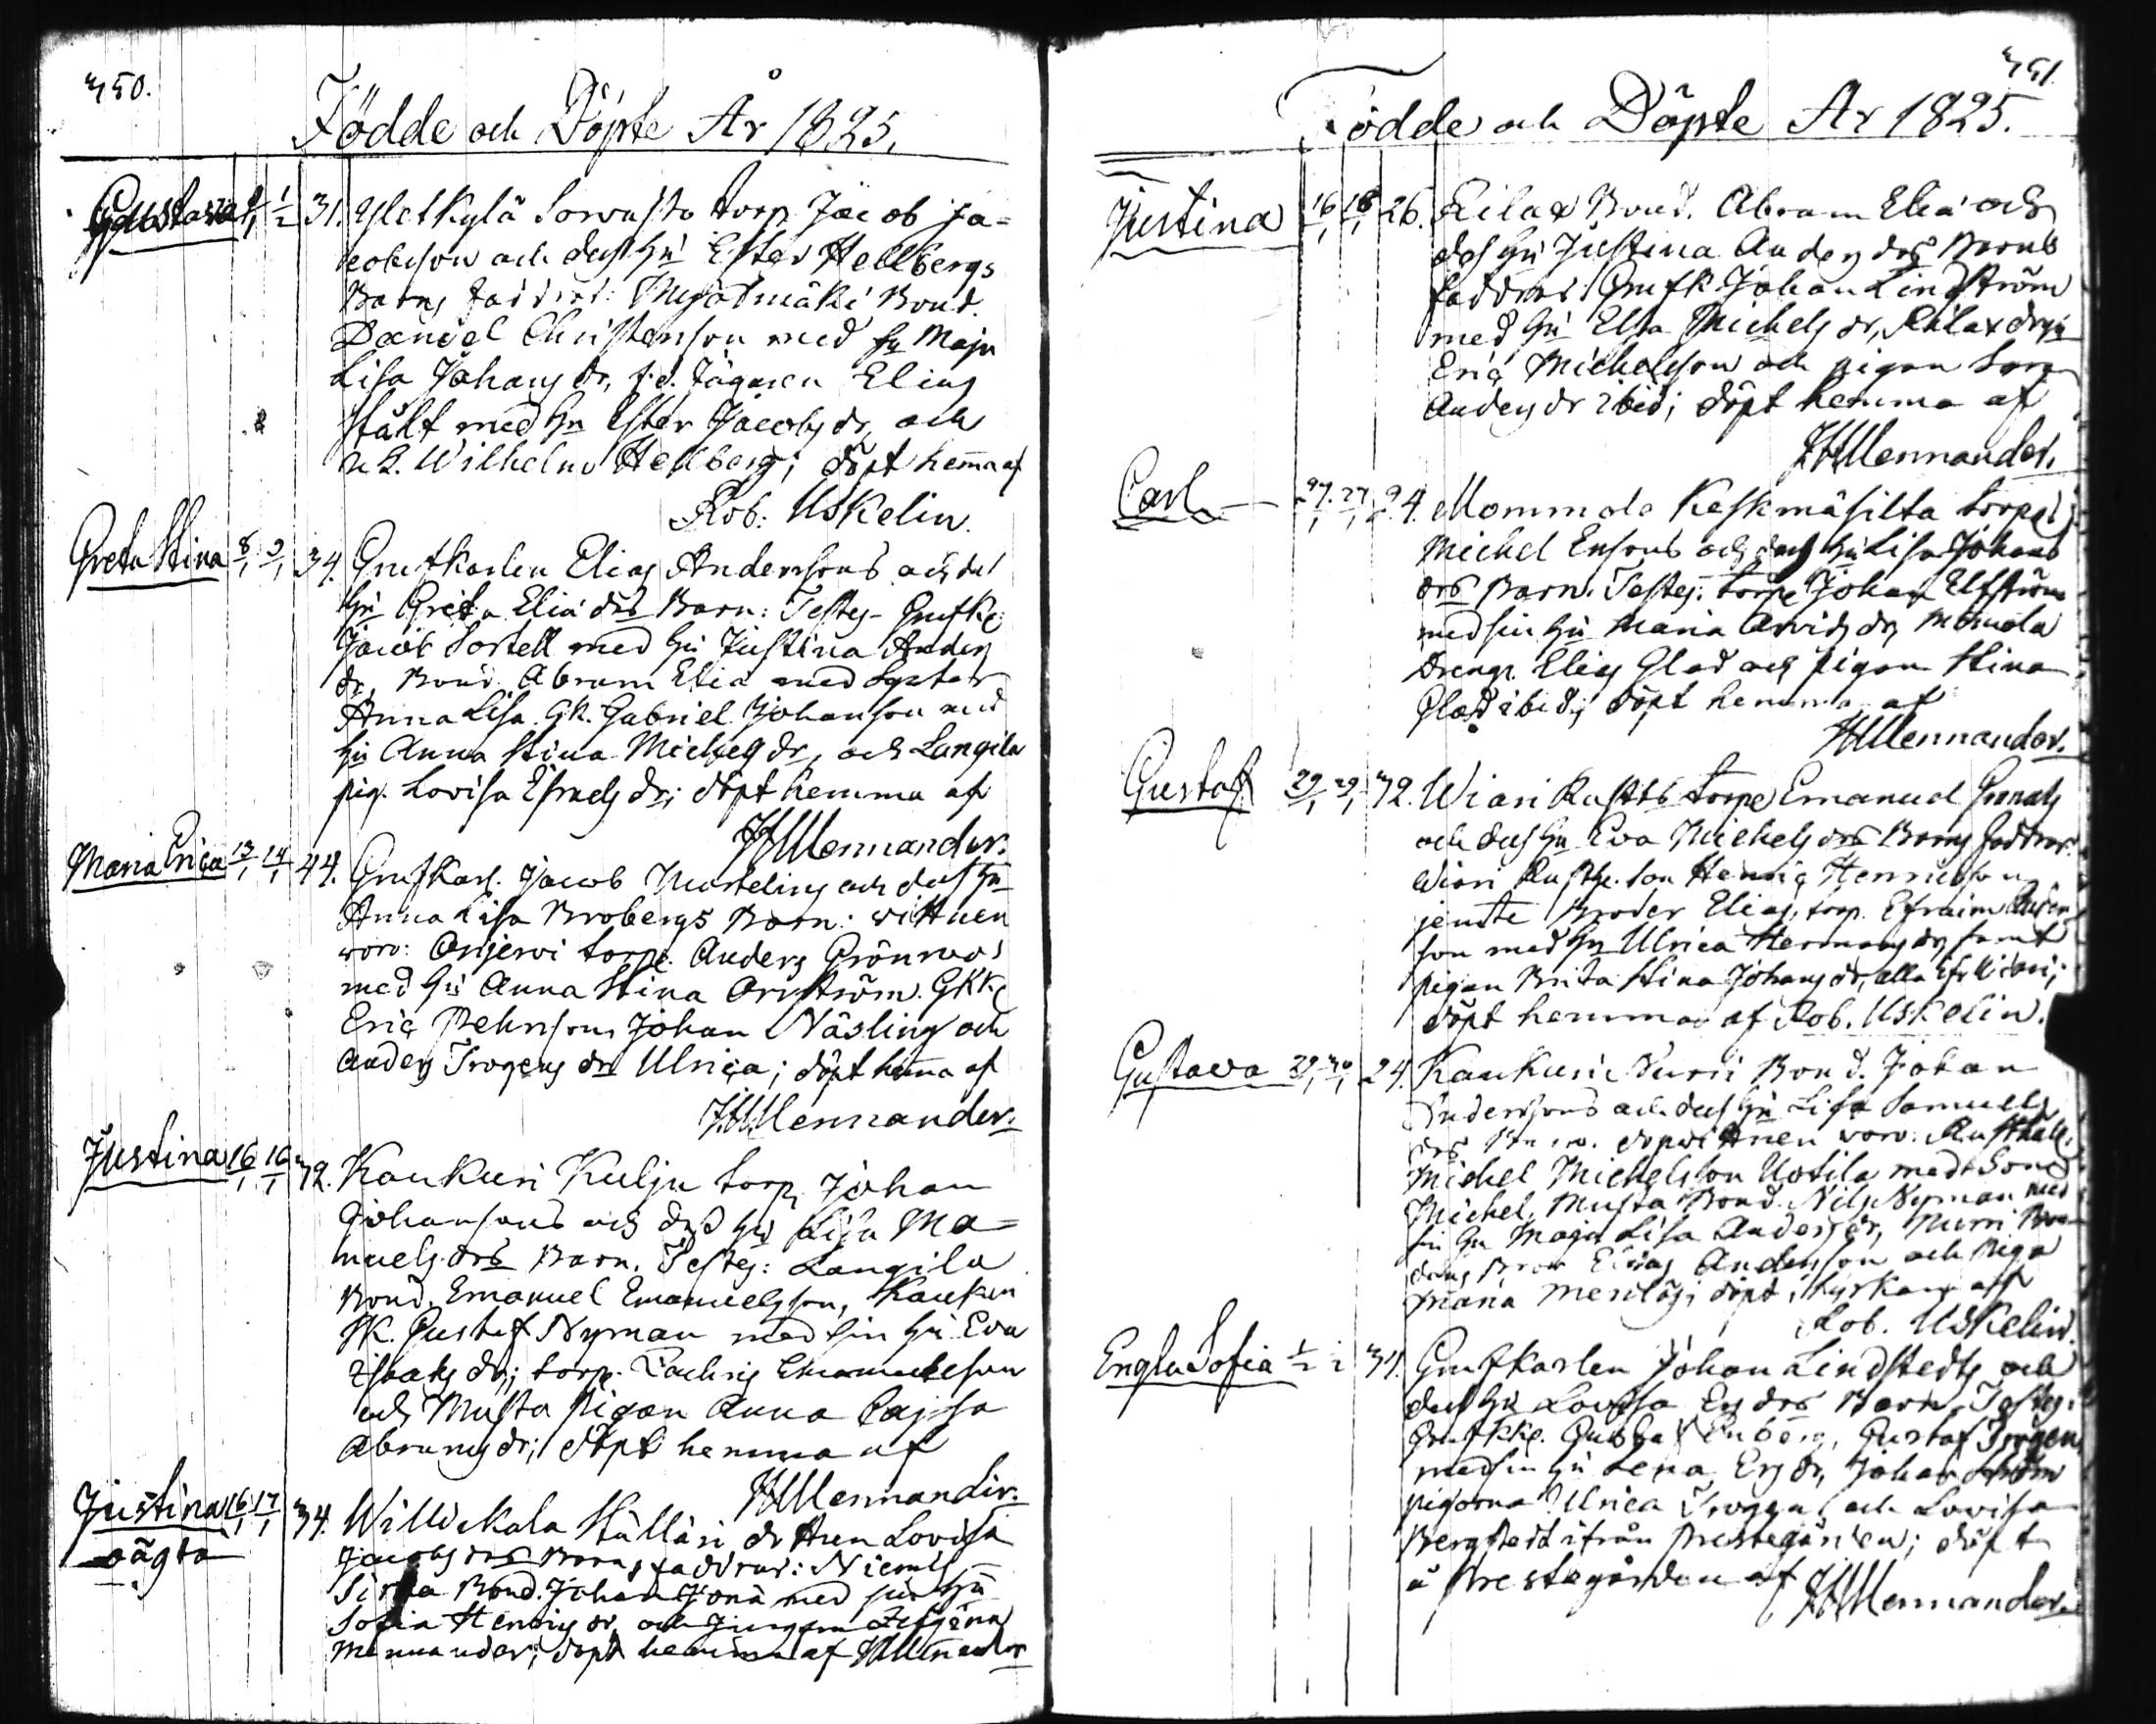 350.
Födde och Döpte År 1825.
Gustava 1/2 31. Yletkylä torp. Jacob Ja=
cobsson och dess Hu Ester Hellbergs
Barns faddrar: Myötmäki Bond.
Daniel Christersson med Hu Maja
Lisa Johans dr, f.d. Jägaren Elias
Stålt med Hu Ester Jacobs dr, och
Wilhelm Hellberg; döpt hema af
Rob: Uskelin.
Greta Stina 8/1 9/1 34. Grufkarlen Elias Anderssons och des
Hu Greta Eliæ drs Barn: Testes Grufk.
Jacob Sorsell med Hu Justina Anders
dr, Bond. Abram Eliæ med Syster
Anna Lisa. Gk. Gabriel Johansson med
Hu Anna Stina Michels dr, och Langila
pig. Lovisa Esraels dr; döpt hemma af
HMennander.
Maria Erica 13/1 14/1 44. Grufkarl. Jacob och dess Hu
Anna Lisa Brobergs Barn: wittnen
woro: Orijerwi torp. Anders Grönroos
med Hu Anna Stina Arnström. Gkk.
Eric Pehrsson, Johan Näsling och
Anders Trogens dr Ulrica; döpt hema af
HMennander.
Justina 16/1 16/1 32. Kaukuri Kulju torp. Johan
Johanssons och dess Hu Lisa Ma=
nuels drs Barn. Testes: Langila
Bond. Emanuel Emanuelsson, Kaukuri
Gustaf Nyman med sin Hu Eva
Isaaks dr; torp. Zachris Emanuelsson
och Musta pigan Anna Cajsa
Abrams dr; döpt hemma af
HMennander.
Justina 16/1 17/1 34. Willikala Ställäri dottren Lovisa
oägta Jacobs drs Barns faddrar: Niemis
Bond. Johan Jonæ med sin Hu
Sofia Henrics dr, och Jungfru
Mennander; döpt hemma af HMennander
351.
Födde och Döpte År 1825.
Justina 16/1 18/1 26. Kilax Bond. Abram Eliæ och
des Hu Justina Anders drs Barns
faddrar: Grufk. Johan Lindström
med Hu Elsa Michels dr, Kilax dreng
Eric Michelsson och pigan Sara
Anders dr ibid; döpt hemma af
HMennander.
Carl 27/1 27/1 24. Mommola Keskmäsilta torp.
Michel Ersons och dess Hu Lisa Johans
drs Barn. Testes: torp. Johan Elfström
med sin Hu Maria Arvids dr, Momola
Dreng. Elias Glad och pigan Stina
Glad ibid; döpt hemma af
HMennander.
Gustaf 29/1 29/1 32. Wiari Rusths torp. Emanuel
och dess Hu Eva Michels drs Barns faddrar:
Wiari Rusth. son Henric Henricsson
jemte Broder Elias, torp. Efraim Anders
son med Hu Ulrica Hermans dr, samt
pigan Brita Stina Johans dr, alla ifr. Wiari;
döpt hemma af Rob. Uskelin.
Gustava 29/1 30/1 24. Kaukuri Nurri Bond. Johan
Anderssons och dess Hu Lisa Samuels
drs Barn. dopwittnen woro: Rusthåll.
Michel Michelsson Uotila med Son
Michel, Musta Bond. Nils Nyman med
sin Hu Maja Lisa Anders dr, Nurri Bon
dens Bror Elias Andersson och Piga
Maria; döpt i kyrkan af
Rob. Uskelin.
Engla Sofia 1/2 34. Grufkarlen Johan Lindstedts och
dess Hu Lovisa Ers drs Barn. Testes:
Grufkk. Gustaf Enberg, Gustaf Trogen
med sin Hu Lena Ers dr, Johan Ström
pigorna Ulrica Trogen och Lovisa
Bergstedt ifrån Prestegården; döpt
å Prestegården af HMennander.